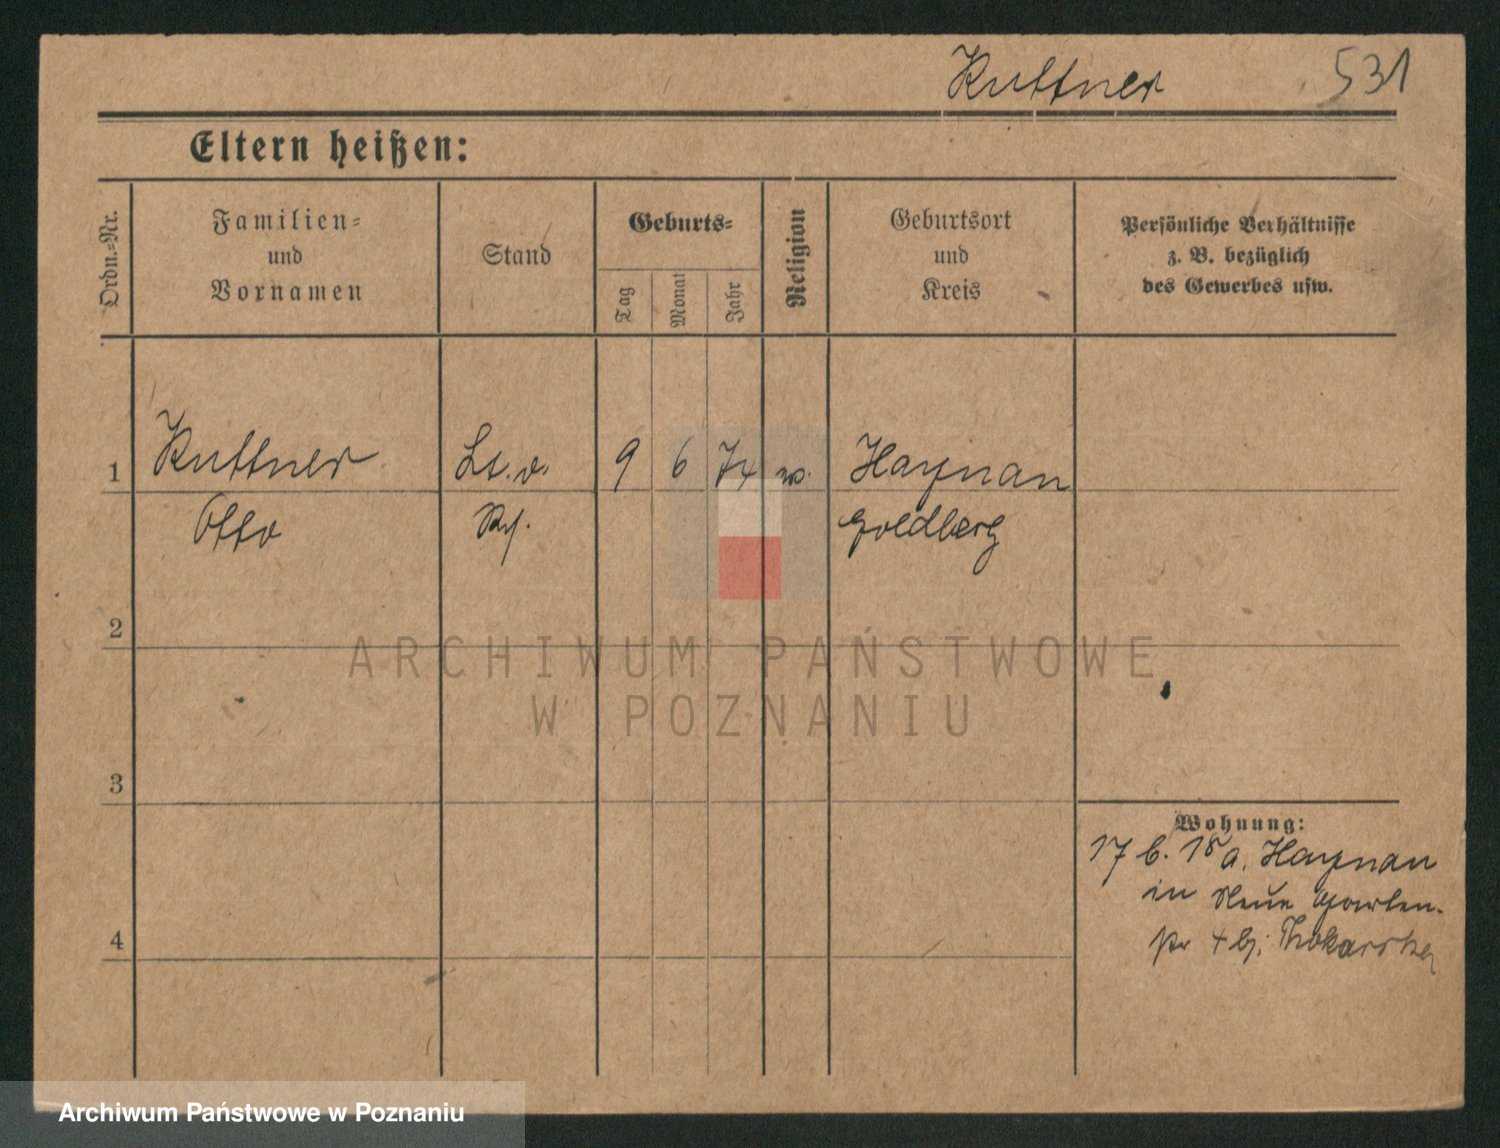 Kuttner 531
Eltern heißen:
Ordn.-Nr.
Familien-
und
Vornamen
Stand
Geburts-
Tag
Monat
Jahr
Religion
Geburtsort
und
Kreis
Persönliche Verhältnisse
z. B. bezüglich
des Gewerbes usw.
1 Kuttner Lt. d. 9 6 74 Haynau
Otto Goldberg
2
3
4
Wohnung:
17 6. 18 a. Haynau
in Neue Garten-
4 bj.
ARCHIWUM PAŃSTWOWE
W POZNANIU
Archiwum Państwowe w Poznaniu